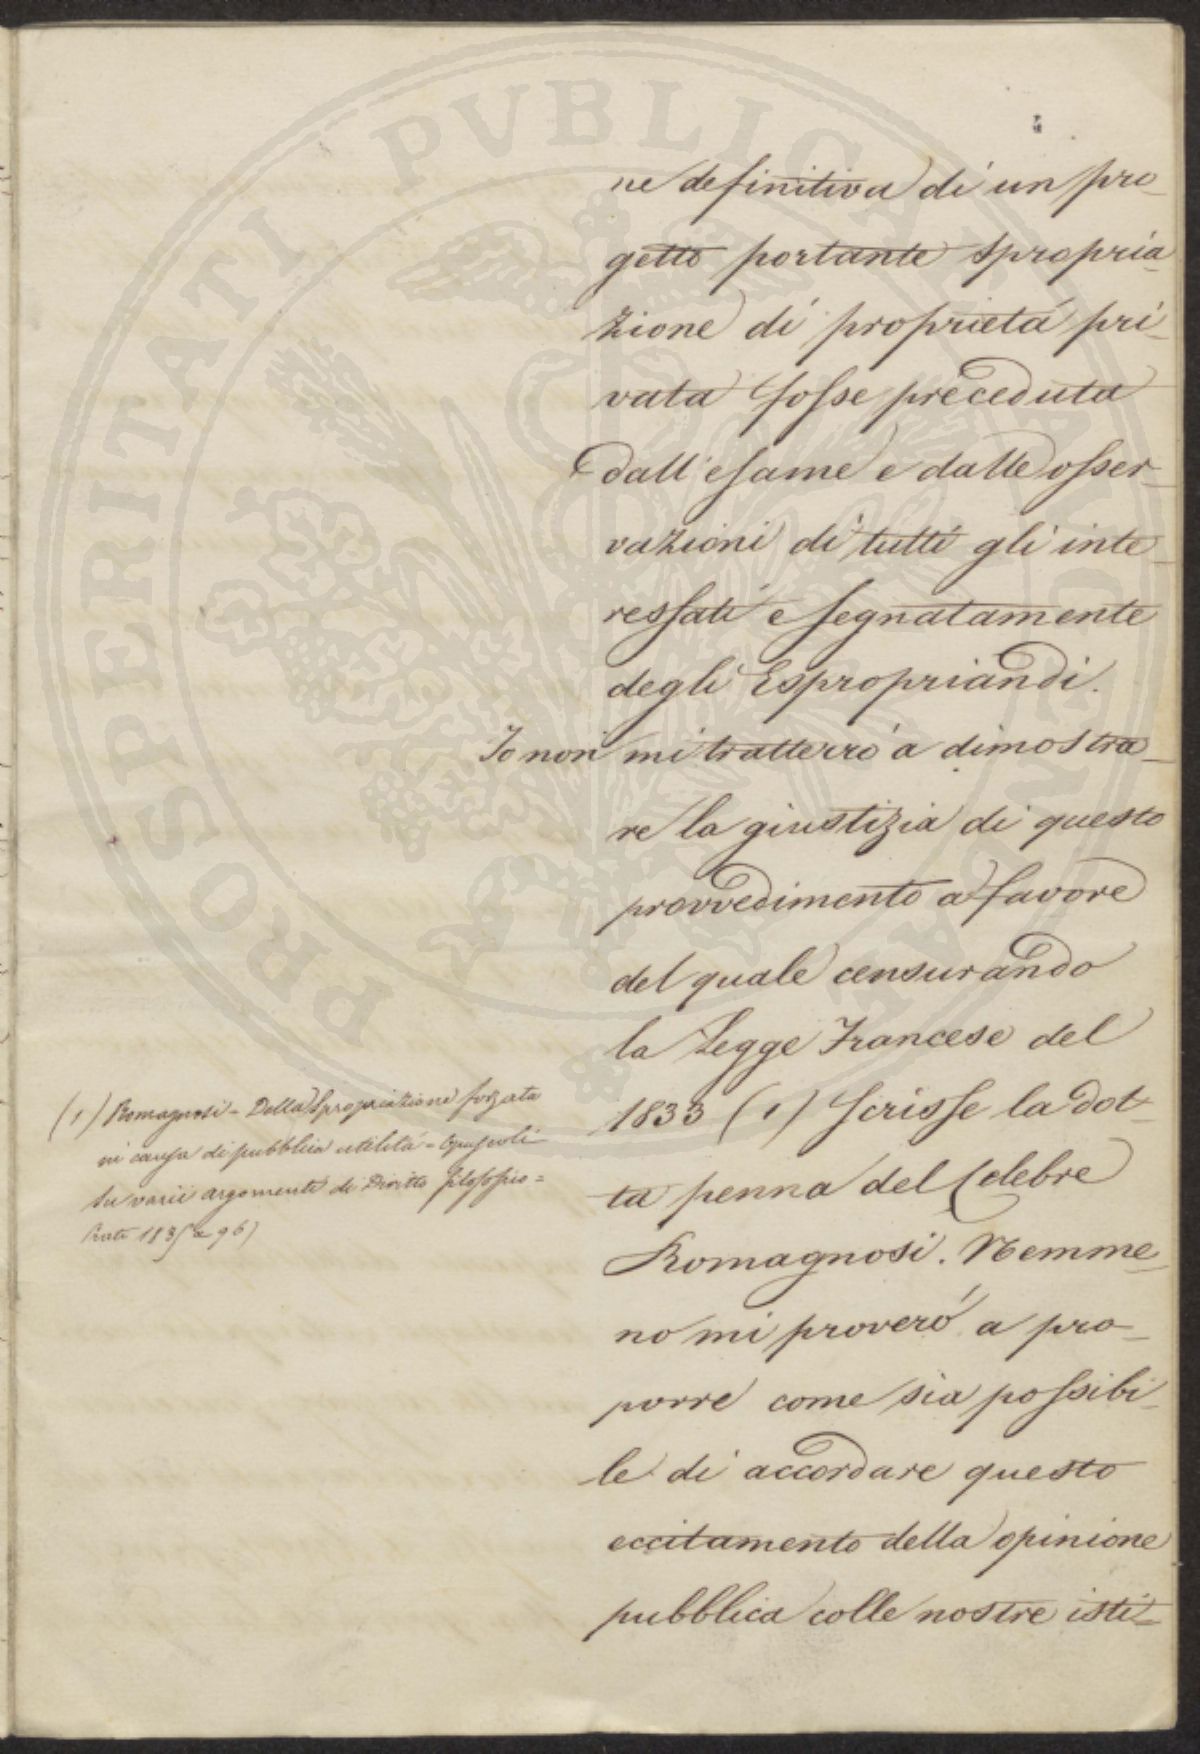 ne definitiva di un pro-
getto portante spropria-
zione di proprietá pri-
vata fosse preceduta
dall'esame e dalle osser-
vazioni di tutti gli inte-
ressati e segnatamente
degli Espropriandi.
Io non mi tratterró a dimostra-
re la giustizia di questo
provvedimento a favore
del quale censurando
la Legge Francese del
1833 (1) scrisse la dot-
ta penna del Celebre
Romagnosi. Nemme-
no mi proveró a pro-
porre come sia possibi-
le di accordare questo
eccitamento della opinione
pubblica colle nostre isti-
(1) Romagnosi - Della Spropriazione forzata
in causa di pubblica utilitá - Opuscoli
su varii argomenti di Diritto filosofico =
PROSPERITATI PVBLICAE